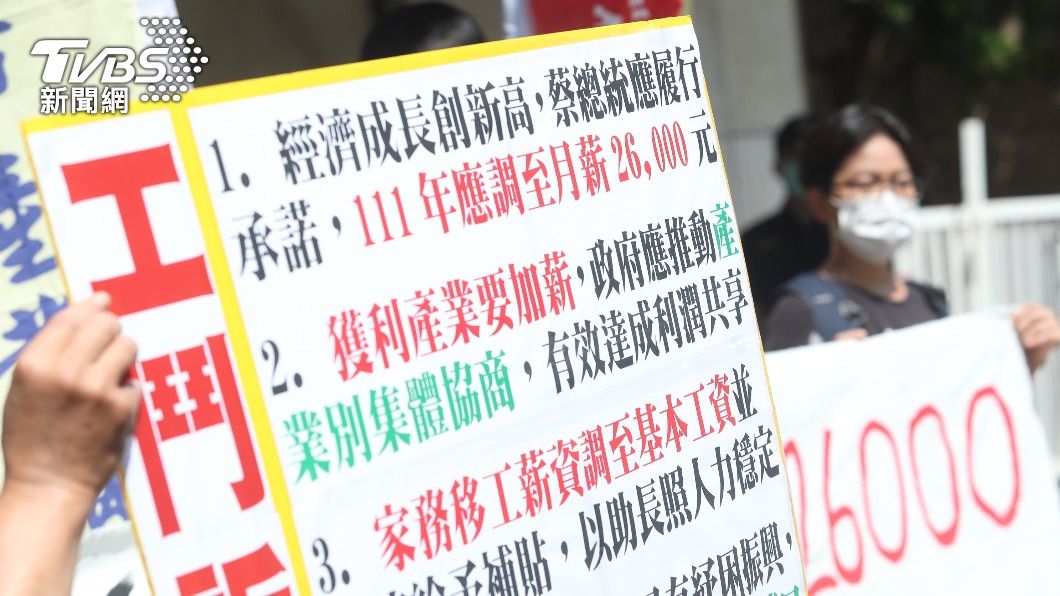 TVBS
新聞網
工鬥訴
1. 經濟成長創新高，蔡總統應履行
承諾，111年應調至月薪26,000元
2. 獲利產業要加薪，政府應推動產
業別集體協商，有效達成利潤共享
3. 家務移工薪資調至基本工資並
給予補貼，以助長照人力穩定
紓困振興，
26000